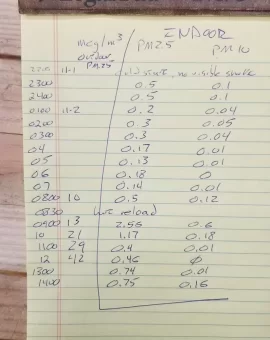 INDOOR
mcg/m³ PM25 PM10
outdoor
PM25
11-1 cold start, no visible smoke
2300 0.5 0.1
2400 0.5 0.1
0100 11-2 0.2 0.04
0200 0.3 0.05
0300 0.3 0.04
04 0.17 0.01
05 0.13 0.01
06 0.18 0
07 0.14 0.01
0800 10 0.5 0.12
0830 hot reload
0900 13 2.55 0.6
10 21 1.17 0.18
1100 29 0.4 0.01
12 42 0.46 Ø
1300 0.74 0.01
1400 0.75 0.16